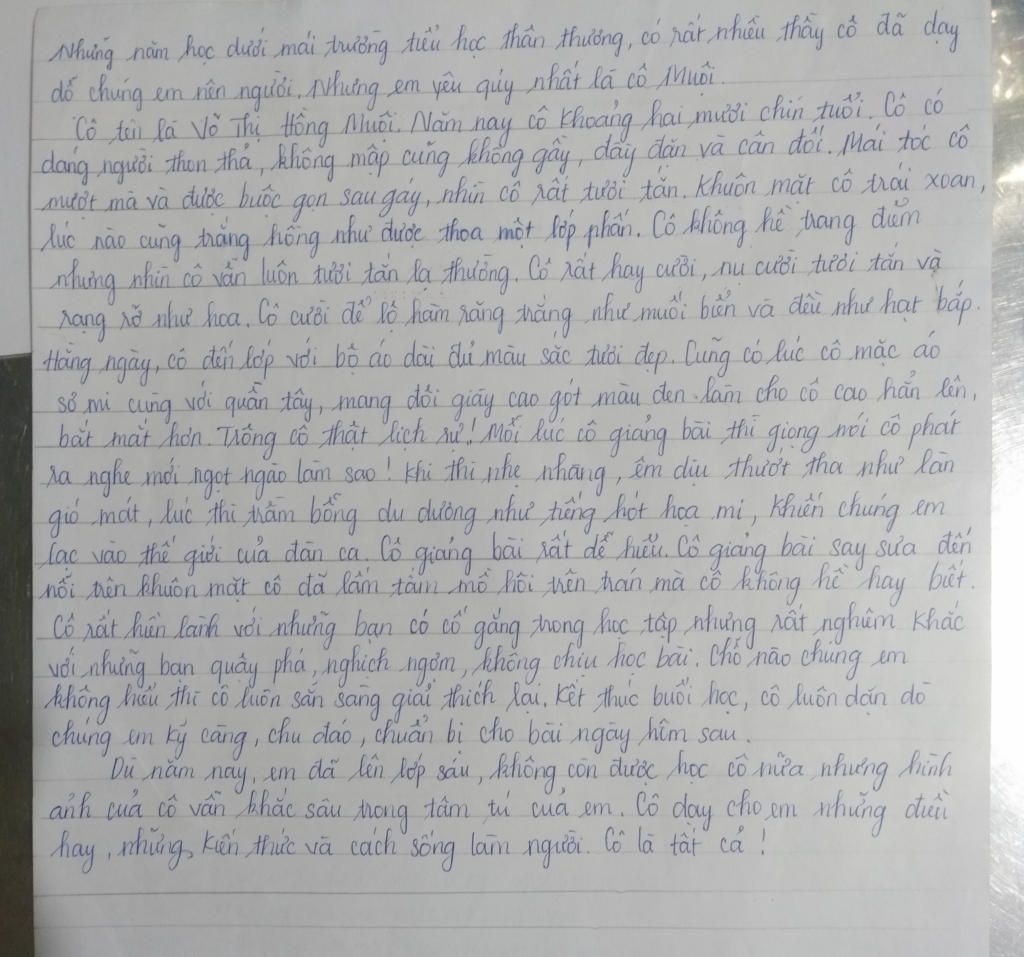 Những năm học dưới mái trường tiểu học thân thương, có rất nhiều thầy cô đã dạy
dỗ chúng em nên người. Nhưng em yêu quý nhất là cô Muôi.
Cô tên là Võ Thị Hồng Muôi. Năm nay cô khoảng hai mươi chín tuổi. Cô có
dáng người thon thả, không mập cũng không gầy, đầy đặn và cân đối. Mái tóc cô
mượt mà và được buộc gọn sau gáy, nhìn cô rất tươi tắn. Khuôn mặt cô trái xoan,
lúc nào cũng trắng hồng như được thoa một lớp phấn. Cô không hề trang điểm
nhưng nhìn cô vẫn luôn tươi tắn lạ thường. Cô rất hay cười, nụ cười tươi tắn và
rạng rỡ như hoa. Cô cười để lộ hàm răng trắng như muối biển và đều như hạt bắp.
Hằng ngày, cô đến lớp với bộ áo dài đủ màu sắc tươi đẹp. Cũng có lúc cô mặc áo
sơ mi cùng với quần tây, mang đôi giày cao gót màu đen làm cho cô cao hẳn lên,
bắt mắt hơn. Trông cô thật lịch sự! Mỗi lúc cô giảng bài thì giọng nói cô phát
ra nghe mới ngọt ngào làm sao! Khi thì nhẹ nhàng, êm dịu thướt tha như làn
gió mát, lúc thì trầm bổng du dương như tiếng hót họa mi, khiến chúng em
lạc vào thế giới của dân ca. Cô giảng bài rất dễ hiểu. Cô giảng bài say sưa đến
nỗi trên khuôn mặt cô đã lấm tấm mồ hôi trên trán mà cô không hề hay biết.
Cô rất hiền lành với những bạn có cố gắng trong học tập nhưng rất nghiêm khắc
với những bạn quậy phá, nghịch ngợm, không chịu học bài. Chỗ nào chúng em
không hiểu thì cô luôn sẵn sàng giải thích lại. Kết thúc buổi học, cô luôn dặn dò
chúng em kỹ càng, chu đáo, chuẩn bị cho bài ngày hôm sau.
Dù năm nay, em đã lên lớp sáu, không còn được học cô nữa nhưng hình
ảnh của cô vẫn khắc sâu trong tâm trí của em. Cô dạy cho em những điều
hay, những kiến thức và cách sống làm người. Cô là tất cả!